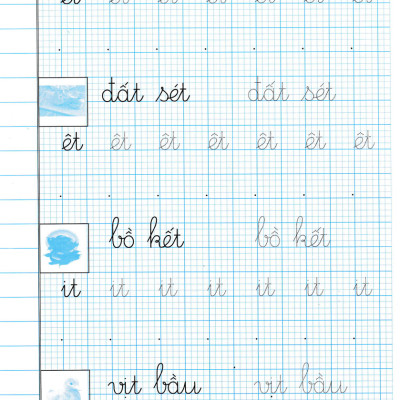 đất sét đất sét
êt êt êt êt êt êt êt
bồ kết bồ kết
it it it it it it it
vịt bầu vịt bầu